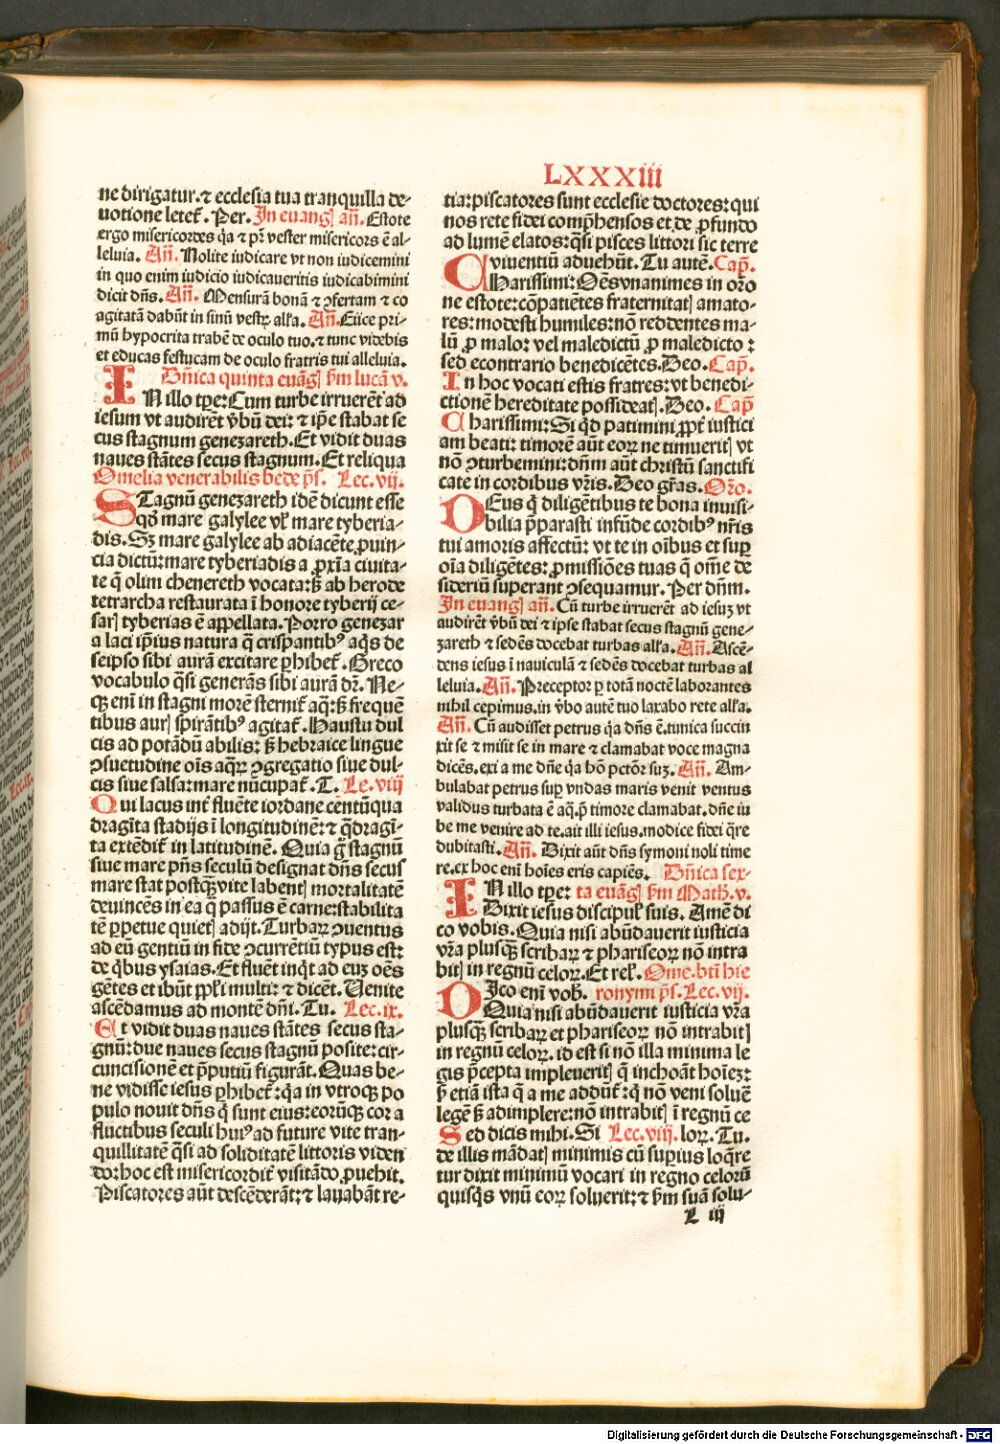 LXXXIII
ne dirigatur. ⁊ ecclesia tua tranquilla de-
uotione letet̄. Per. In euanḡ an̄. Estote
ergo misericordes q̄a ⁊ pr̄ vester misericors ē al-
leluia. An̄. Nolite iudicare vt non iudicemini
in quo enim iudicio iudicaueritis iudicabimini
dicit dn̄s. An̄. Mensurā bonā ⁊ ꝯfertam ⁊ co
agitatā dabūt in sinū vestꝝ all'a. An̄. Eiice pri-
mū hypocrita trabē de oculo tuo. ⁊ tunc videbis
et educas festucam de oculo fratris tui alleluia.
Dn̄ica quinta euāḡ ẜm lucā v.
IN illo tꝑe: Cum turbe irruerēt ad
iesum vt audirēt v̄bū dei: ⁊ ip̄e stabat se
cus stagnum genezareth. Et vidit duas
naues stātes secus stagnum. Et reliqua
Omelia venerabilis bede p̄s. Lec. vij.
STagnū genezareth idē dicunt esse
qd̄ mare galylee vl' mare tyberia-
dis. Sꝫ mare galylee ab adiacēte ꝓuin-
cia dictū: mare tyberiadis a ꝓxīa ciuita-
te q̄ olim chenereth vocata: ẜ ab herode
tetrarcha restaurata ī honore tyberij ce-
sarꝭ tyberias ē appellata. Porro genezar
a laci ip̄ius natura q̄ crispantibꝰ aq̄s de
seipso sibi aurā excitare ꝑhibet̄. Greco
vocabulo q̄si generās sibi aurā dr̄. Ne-
qꝫ enī in stagni morē sternit̄ aq̄: ẜ frequē
tibus aurꝭ spirātibꝰ agitat̄. Haustu dul
cis ad potādū abilis: ẜ hebraice lingue
ꝯsuetudine oīs aq̄ꝝ ꝯgregatio siue dul-
cis siue salsa: mare nūcupat̄. T. Le. viij
Qui lacus int̄ fluēte iordane centū qua
dragīta stadijs ī longitudinē: ⁊ q̄dragī-
ta extēdit̄ in latitudinē. Quia g̊ stagnū
siue mare p̄ns seculū designat dn̄s secus
mare stat postqꝫ vite labentꝭ mortalitatē
deuincēs in ea q̄ passus ē carne: stabilita
tē ꝑpetue quietꝭ adijt. Turbaꝝ ꝯuentus
ad eū gentiū in fide ꝯcurrētiū typus est:
de q̄bus ysaias. Et fluēt inq̄t ad euꝫ oēs
gētes et ibūt ppl'i multi: ⁊ dicēt. Uenite
ascēdamus ad montē dn̄i. Tu. Lec. ix.
Et vidit duas naues stātes secus sta-
gnū: due naues secus stagnū posite: cir-
cuncisionē et p̄putiū figurāt. Quas be-
ne vidisse iesus ꝑhibet̄: q̄a in vtroqꝫ po
pulo nouit dn̄s q̄ sunt eius: eorūqꝫ cor a
fluctibus seculi huiꝰ ad future vite tran-
quillitatē q̄si ad soliditatē littoris viden
do: hoc est misericordit̄ visitādo ꝓuehit.
Piscatores aūt descēderāt: ⁊ lauabāt re-
tia: piscatores sunt ecclesie doctores: qui
nos rete fidei comp̄hensos et de ꝓfundo
ad lumē elatos: q̄si pisces littori sic terre
viuentiū aduehūt. Tu autē. Cap̄.
CHarissimi: Oēs vnanimes in orō
ne estote: cōpatiētes fraternitatꝭ amato-
res: modesti humiles: nō reddentes ma-
lū ꝓ malo: vel maledictū ꝓ maledicto:
sed econtrario benedicētes. Deo. Cap̄.
In hoc vocati estis fratres: vt benedi-
ctionē hereditate possideatꝭ. Deo. Cap̄
Charissimi: Si qd̄ patimini ꝓpt̄ iustici
am beati: timorē aūt eoꝝ ne timueritꝭ vt
nō ꝯturbemini: dn̄m aūt christū sanctifi
cate in cordibus vr̄is. Deo gr̄as. Orō.
DEus q̄ diligētibus te bona inuisi-
bilia p̄parasti infūde cordibꝰ nr̄is
tui amoris affectū: vt te in oībus et suꝑ
oīa diligētes: ꝓmissiōes tuas q̄ om̄e de
sideriū superant ꝯsequamur. Per dn̄m.
In euangꝭ an̄. Cū turbe irruerēt ad iesuꝫ vt
audirēt v̄bū dei ⁊ ipse stabat secus stagnū gene-
zareth ⁊ sedēs docebat turbas all'a. An̄. Ascē-
dens iesus ī nauiculā ⁊ sedēs docebat turbas al
leluia. An̄. Preceptor ꝑ totā noctē laborantes
nihil cepimus. in v̄bo autē tuo laxabo rete all'a.
An̄. Cū audisset petrus q̄a dn̄s ē. tunica succin
xit se ⁊ misit se in mare ⁊ clamabat voce magna
dicēs. exi a me dn̄e q̄a hō pctōr suꝫ. An̄. Am-
bulabat petrus suꝑ vndas maris venit ventus
validus turbata ē aq̄. p̄ timore clamabat. dn̄e iu
be me venire ad te. ait illi iesus. modice fidei q̄re
dubitasti. An̄. Dixit aūt dn̄s symoni noli time
re. ex hoc enī hoīes eris capiēs. Dn̄ica sex-
IN illo tꝑe: ta euāgꝭ ẜm Math. v.
Dixit iesus discipul' suis. Amē di
co vobis. Quia nisi abūdauerit iusticia
vr̄a plusqꝫ scribaꝝ ⁊ phariseoꝝ nō intra
bitꝭ in regnū celoꝝ. Et rel'. Ome. bt̄i hie
DIco enī vob̄. ronymi p̄s. Lec. vij.
Quia nisi abūdauerit iusticia vr̄a
plusqꝫ scribaꝝ et phariseoꝝ nō intrabitꝭ
in regnū celoꝝ. id est si nō illa minima le
gis p̄cepta impleueritꝭ q̄ inchoāt hoīeꝫ:
ẜ etiā ista q̄ a me addūt̄: q̄ nō veni soluē
legē ẜ adimplere: nō intrabitꝭ ī regnū ce
Sed dicis mihi. Si Lec. viij. loꝝ. Tu.
de illis mādatꝭ minimis cū superius loq̄re
tur dixit minimū vocari in regno celorū
quisq̄s vnū eoꝝ soluerit: ⁊ ẜm suā solu-
L iij
Digitalisierung gefördert durch die Deutsche Forschungsgemeinschaft - DFG